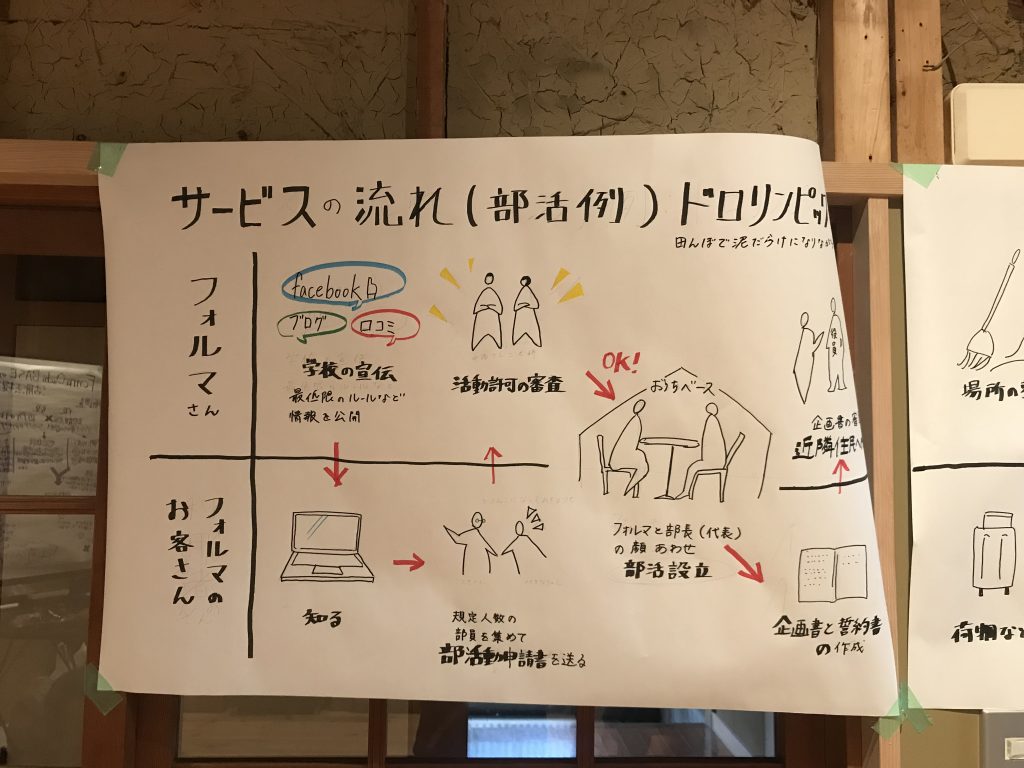 サービスの流れ(部活例)ドロリンピック
田んぼで泥だらけになりなが
フォルマさん
facebook
ブログ
口コミ
学校の宣伝
最低限のルールなど
情報を公開
活動許可の審査
OK!
おうちベース
役員
企画書の
近隣住民へ
場所の
フォルマの
お客さん
知る
規定人数の
部員を集めて
部活動申請書を送る
フォルマと部長(代表)
の顔あわせ
部活設立
企画書と誓約書
の作成
荷物など